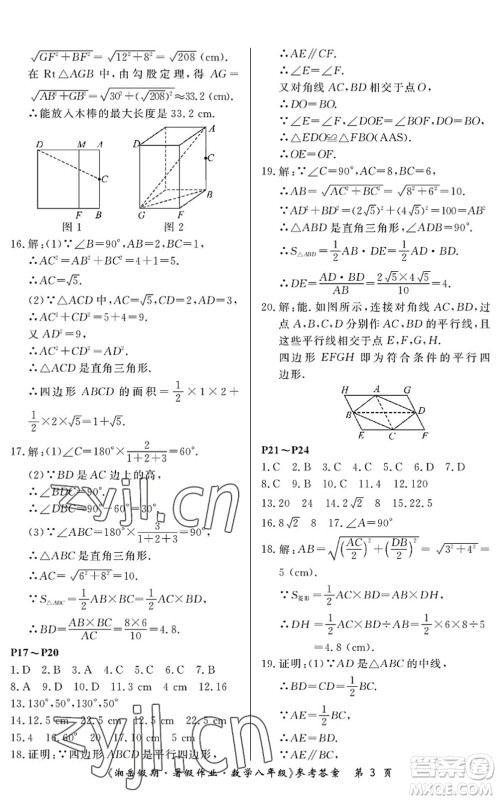 √(GF²+BF²)=√(12²+8²)=√208 (cm).
在 Rt△AGB 中,由勾股定理,得 AG=
√(AB²+GB²)=√(30²+(√208)²)≈33.2(cm).
∴能放入木棒的最大长度是 33.2 cm.
D M A
C
F B
图 1
A
C
G F B
图 2
16.解:(1)∵∠B=90°,AB=1,BC=2,
∴AC²=AB²+BC²=4+1=5.
∴AC=√5.
(2)∵△ACD 中,AC=√5,CD=2,AD=3,
∴AC²+CD²=5+4=9.
又 AD²=9,
∴AC²+CD²=AD².
∴△ACD是直角三角形.
∴四边形 ABCD 的面积=1/2×1×2+
1/2×2×√5=1+√5.
17.解:(1)∠C=180°×2/(1+2+3)=60°.
(2)∵BD是 AC 边上的高,
∴∠BDC=90°.
(3)∵∠ABC=180°×3/(1+2+3)=90°,
∴△ABC是直角三角形.
∴AC=√(6²+8²)=10.
∵S△ABC=1/2AB×BC=1/2AC×BD,
∴BD=AB×BC/AC=8×6/10=4.8.
P17～P20
1.D 2.B 3.A 4.C 5.B 6.B 7.C
8.A 9.D 10.D 11.3 cm 12.16
13.130°,50°,130°
14.12.5 cm 22.5 cm
15.①②③④
18.证明:∵四边形
∴AE∥CF.
∴∠E=∠F.
又对角线 AC,BD相交于点O,
∴DO=BO.
∵∠EOD=∠FOB,
∴△EDO≌△FBO(AAS).
∴OE=OF.
19.解:∵∠C=90°,AC=8,BC=6,
∴AB=√(AC²+BC²)=√(8²+6²)=10.
∵(2√5)²+(4√5)²=10²,
∴△ABD是直角三角形.
∴S△ABD=1/2AB·DE=1/2AD·BD.
∴DE=AD·BD/AB=2√5×4√5/10=4.
20.解:能.如图所示,连接对角线AC,BD,过
点A,B,C,D分别作BD,AC的平行线,且
这些平行线相交于点E,F,G,H.
四边形 EFGH 即为符合条件的平行四
边形.
H A E
B D
C
P21～P24
1.C 2.B 3.C 4.D 5.C 6.B 7.D
8.C 9.B 10.C 11.4 12.120
13.20 24 14.8√2 15.22.5
16.8√2 8 17.5
18.解:AB=√((AC/2)²+(DB/2)²)=√(3²+4²)=
5(cm).
∵S菱形=1/2AC×BD=AB×DH,
∴DH=1/2AC×BD÷AB=1/2×6×8÷5
=4.8(cm).
19.证明:(1)∵AD是△ABC的中线,
∴BD=CD.
∵AE∥BC,
∴∠AEF=∠DBF.
《湘岳假期·暑假作业·数学八年级》参考答案 第 3 页
zyjl.cn
zyjl.cn